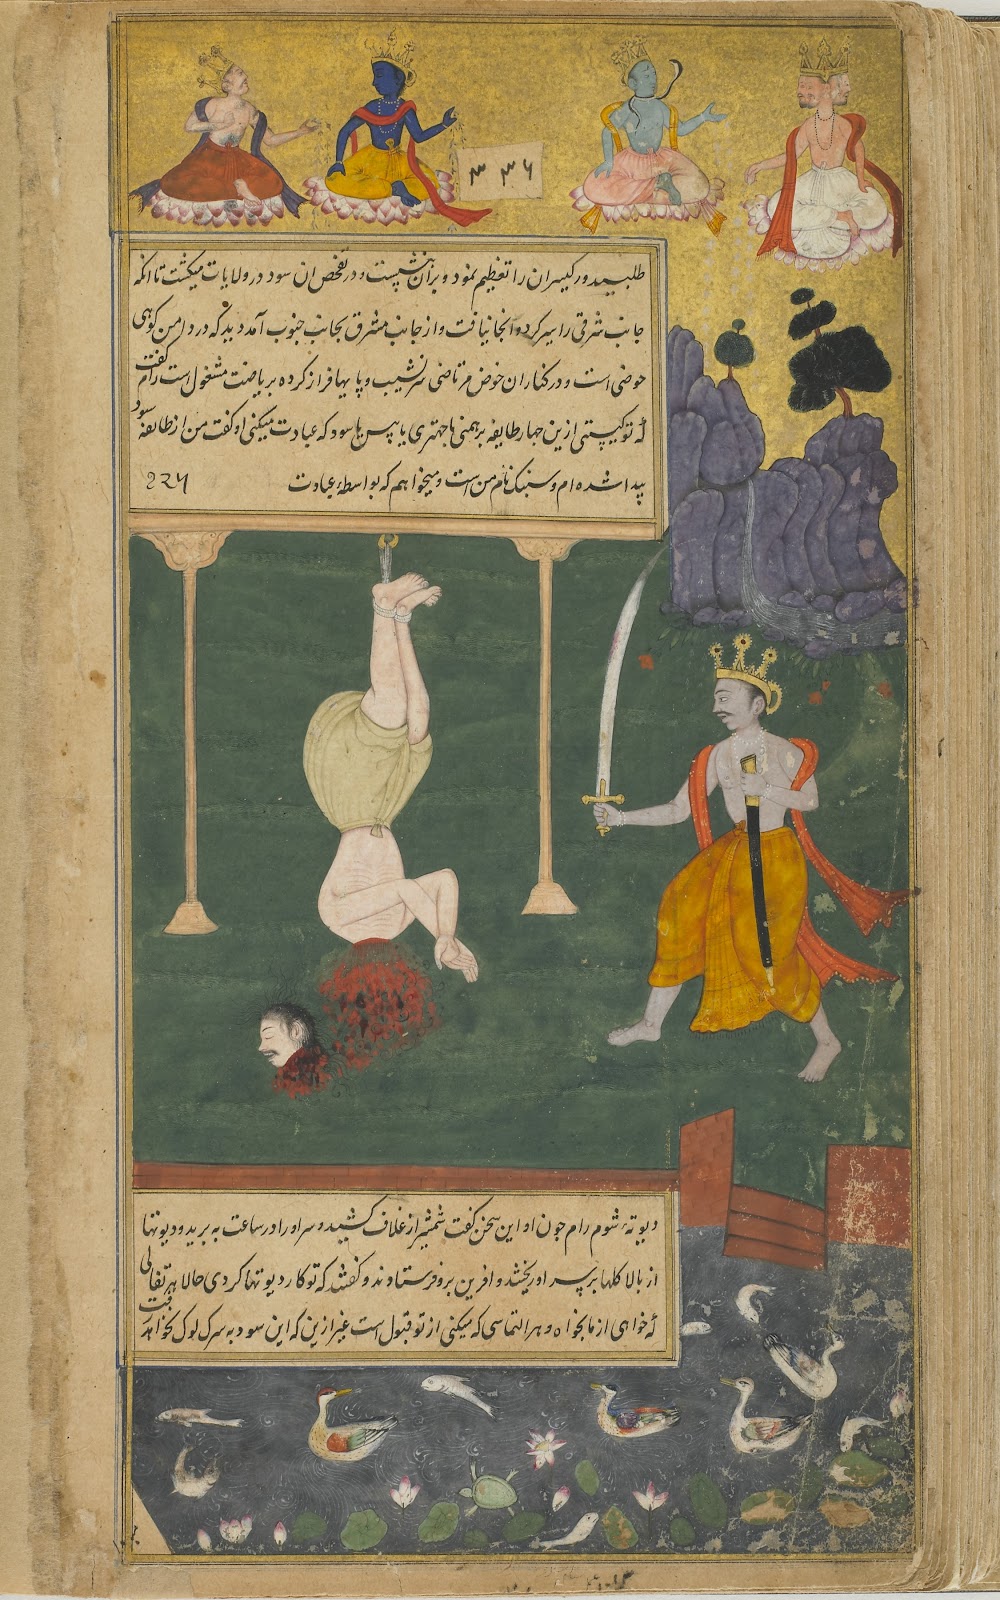 ۳۳۶
طلبید و بر کیسران را تعظیم نمود و بر آن بنشست و در تفحص آن سود در ولایات میکشت تا آنکه
جانب شرقی را سیر کرد و آنجا نیافت و از جانب مشرق بجانب جنوب آمد دید که در دامن کوهی
حوضی است و در کنار آن حوض مرتاضی سر نشیب و پایها فراز کرده بریاضت مشغول است رام گفت
که تو کیستی ازین چهار طایفه برهمنی یا چهتری یا بیس یا سود که عبادت میکنی او گفت من از طایفه سود
پیدا شده ام و سنبک نام من است و میخواهم که بواسطهٔ عبادت
۲۲۵
دیوته شوم رام چون او این سخن گفت شمشیر از غلاف کشید و سر او را در ساعت به برید و دیوتها
از بالا کلها بر سر او ریختند و آفرین برو فرستادند و گفتند که تو کار دیوتها کردی حالا هر تفالی
که خواهی از ما بخواه و هر التماسی که میکنی از تو قبول است غیر ازین که این سود به سرک لوک نخواهد رفت